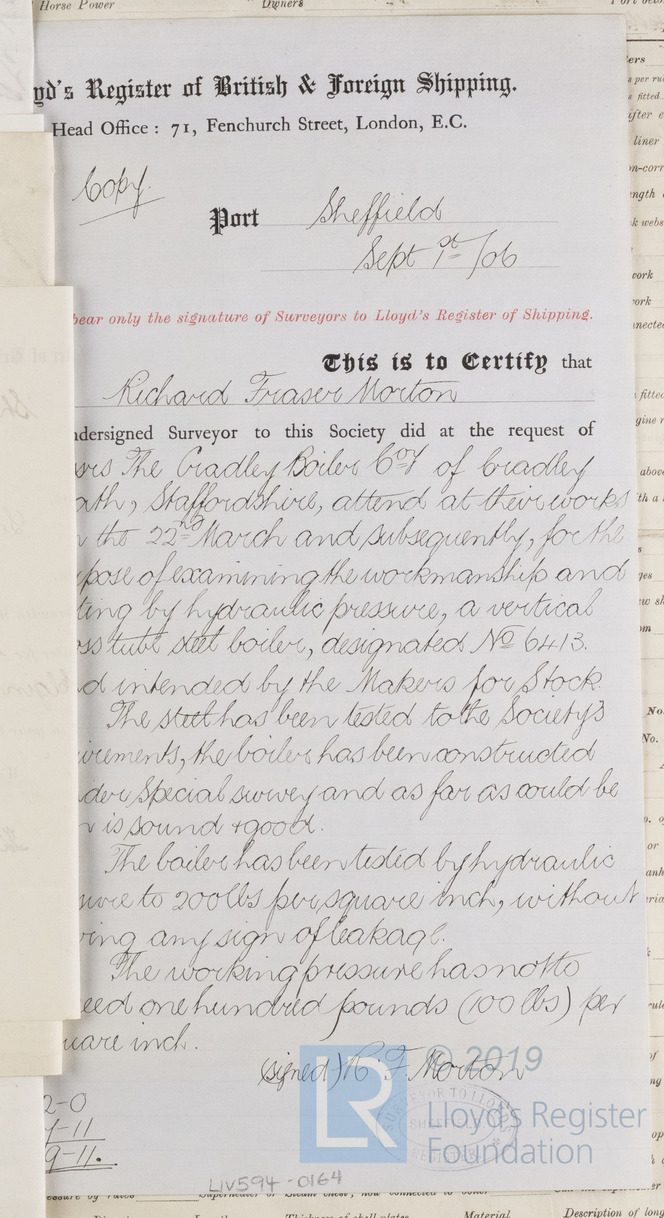 Horse Power Owners
yd's Register of British & Foreign Shipping.
Head Office: 71, Fenchurch Street, London, E.C.
Copy.
Port Sheffield
Sept 1st /06
bear only the signature of Surveyors to Lloyd's Register of Shipping.
This is to Certify that
Richard Fraser Morton
ndersigned Surveyor to this Society did at the request of
srs The Cradley Boiler Coy of Cradley
ath, Staffordshire, attend at their works
n the 22nd March and subsequently, for the
rpose of examining the workmanship and
ting by hydraulic pressure, a vertical
ss tube steel boiler, designated No 6413.
d intended by the Makers for Stock.
The steel has been tested to the Society's
irements, the boiler has been constructed
der Special survey and as far as could be
n is sound + good.
The boiler has been tested by hydraulic
sure to 200 lbs per square inch, without
wing any sign of leakage.
The working pressure has not to
eed one hundred pounds (100 lbs) per
uare inch.
(signed) R. F. Morton
2-0
7-11
9-11.
LR © 2019
Lloyd's Register
Foundation
SURVEYOR TO LLOYD'S
SHEFFIELD
REGISTER
LIV594-0164
Thickness of shell plates Material Description of long